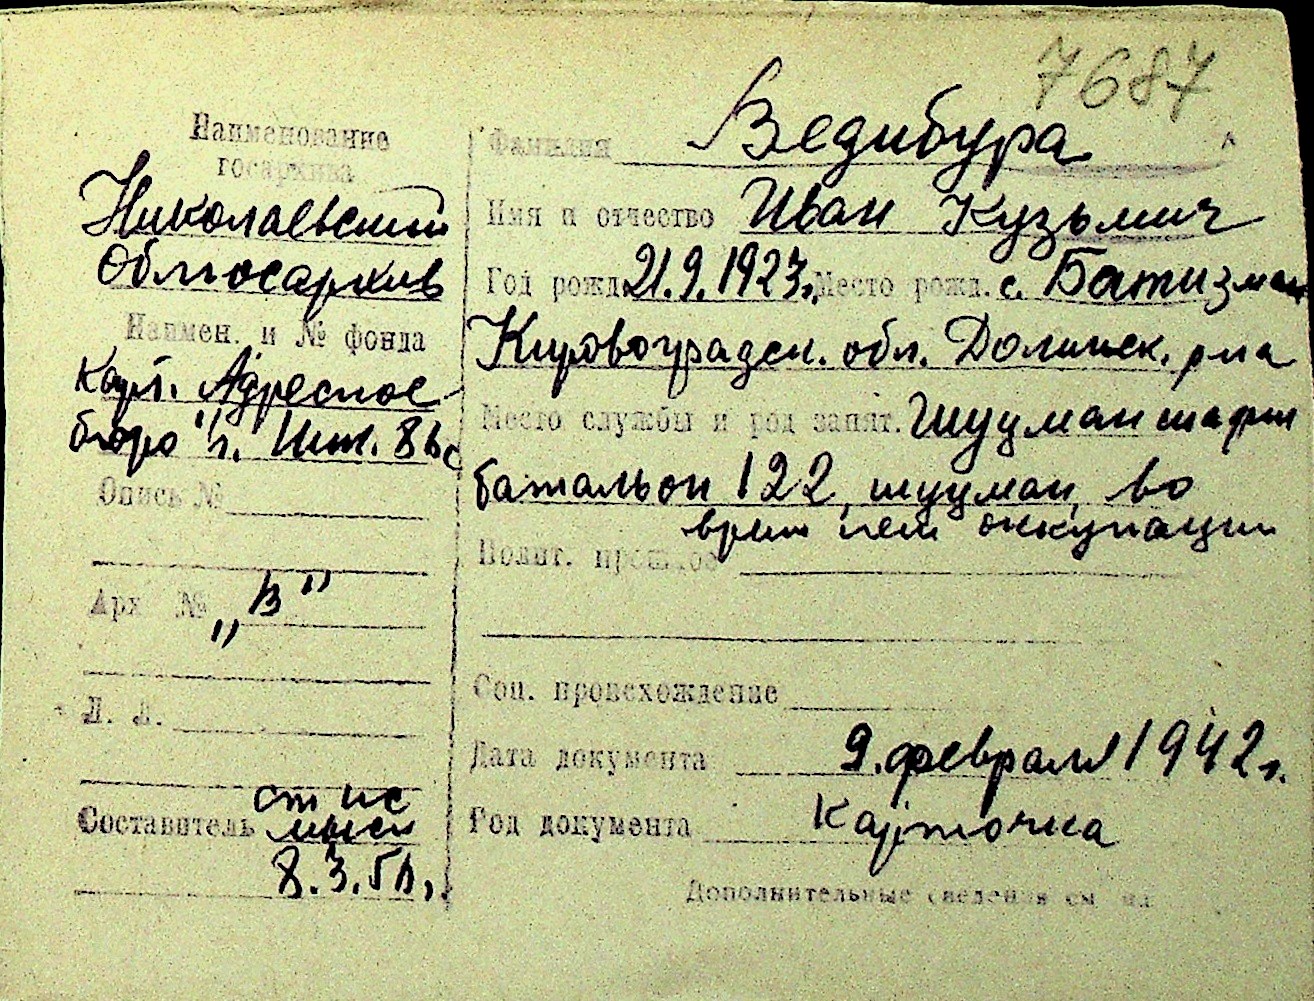 7687
Наименование
госархива
Николаевский
Облгосархив
Наимен. и № фонда
Карт. Адресное
бюро
Опись №
Арх №
„В"
Л. Л.
Составитель
8.3.
Фамилия Ведибура
Имя и отчество Иван Кузьмич
Год рожд. 21.9.1923г. Место рожд. с. Батизман
Кировоградск. обл. Долинск. р-на
Место службы и род занят. Шуцманшафт
батальон 122, шуцман, во
врем. нем оккупации
Полит. прошлое
Соц. происхождение
Дата документа 9. февраля 1942г.
Род документа Карточка
Дополнительные сведения см на